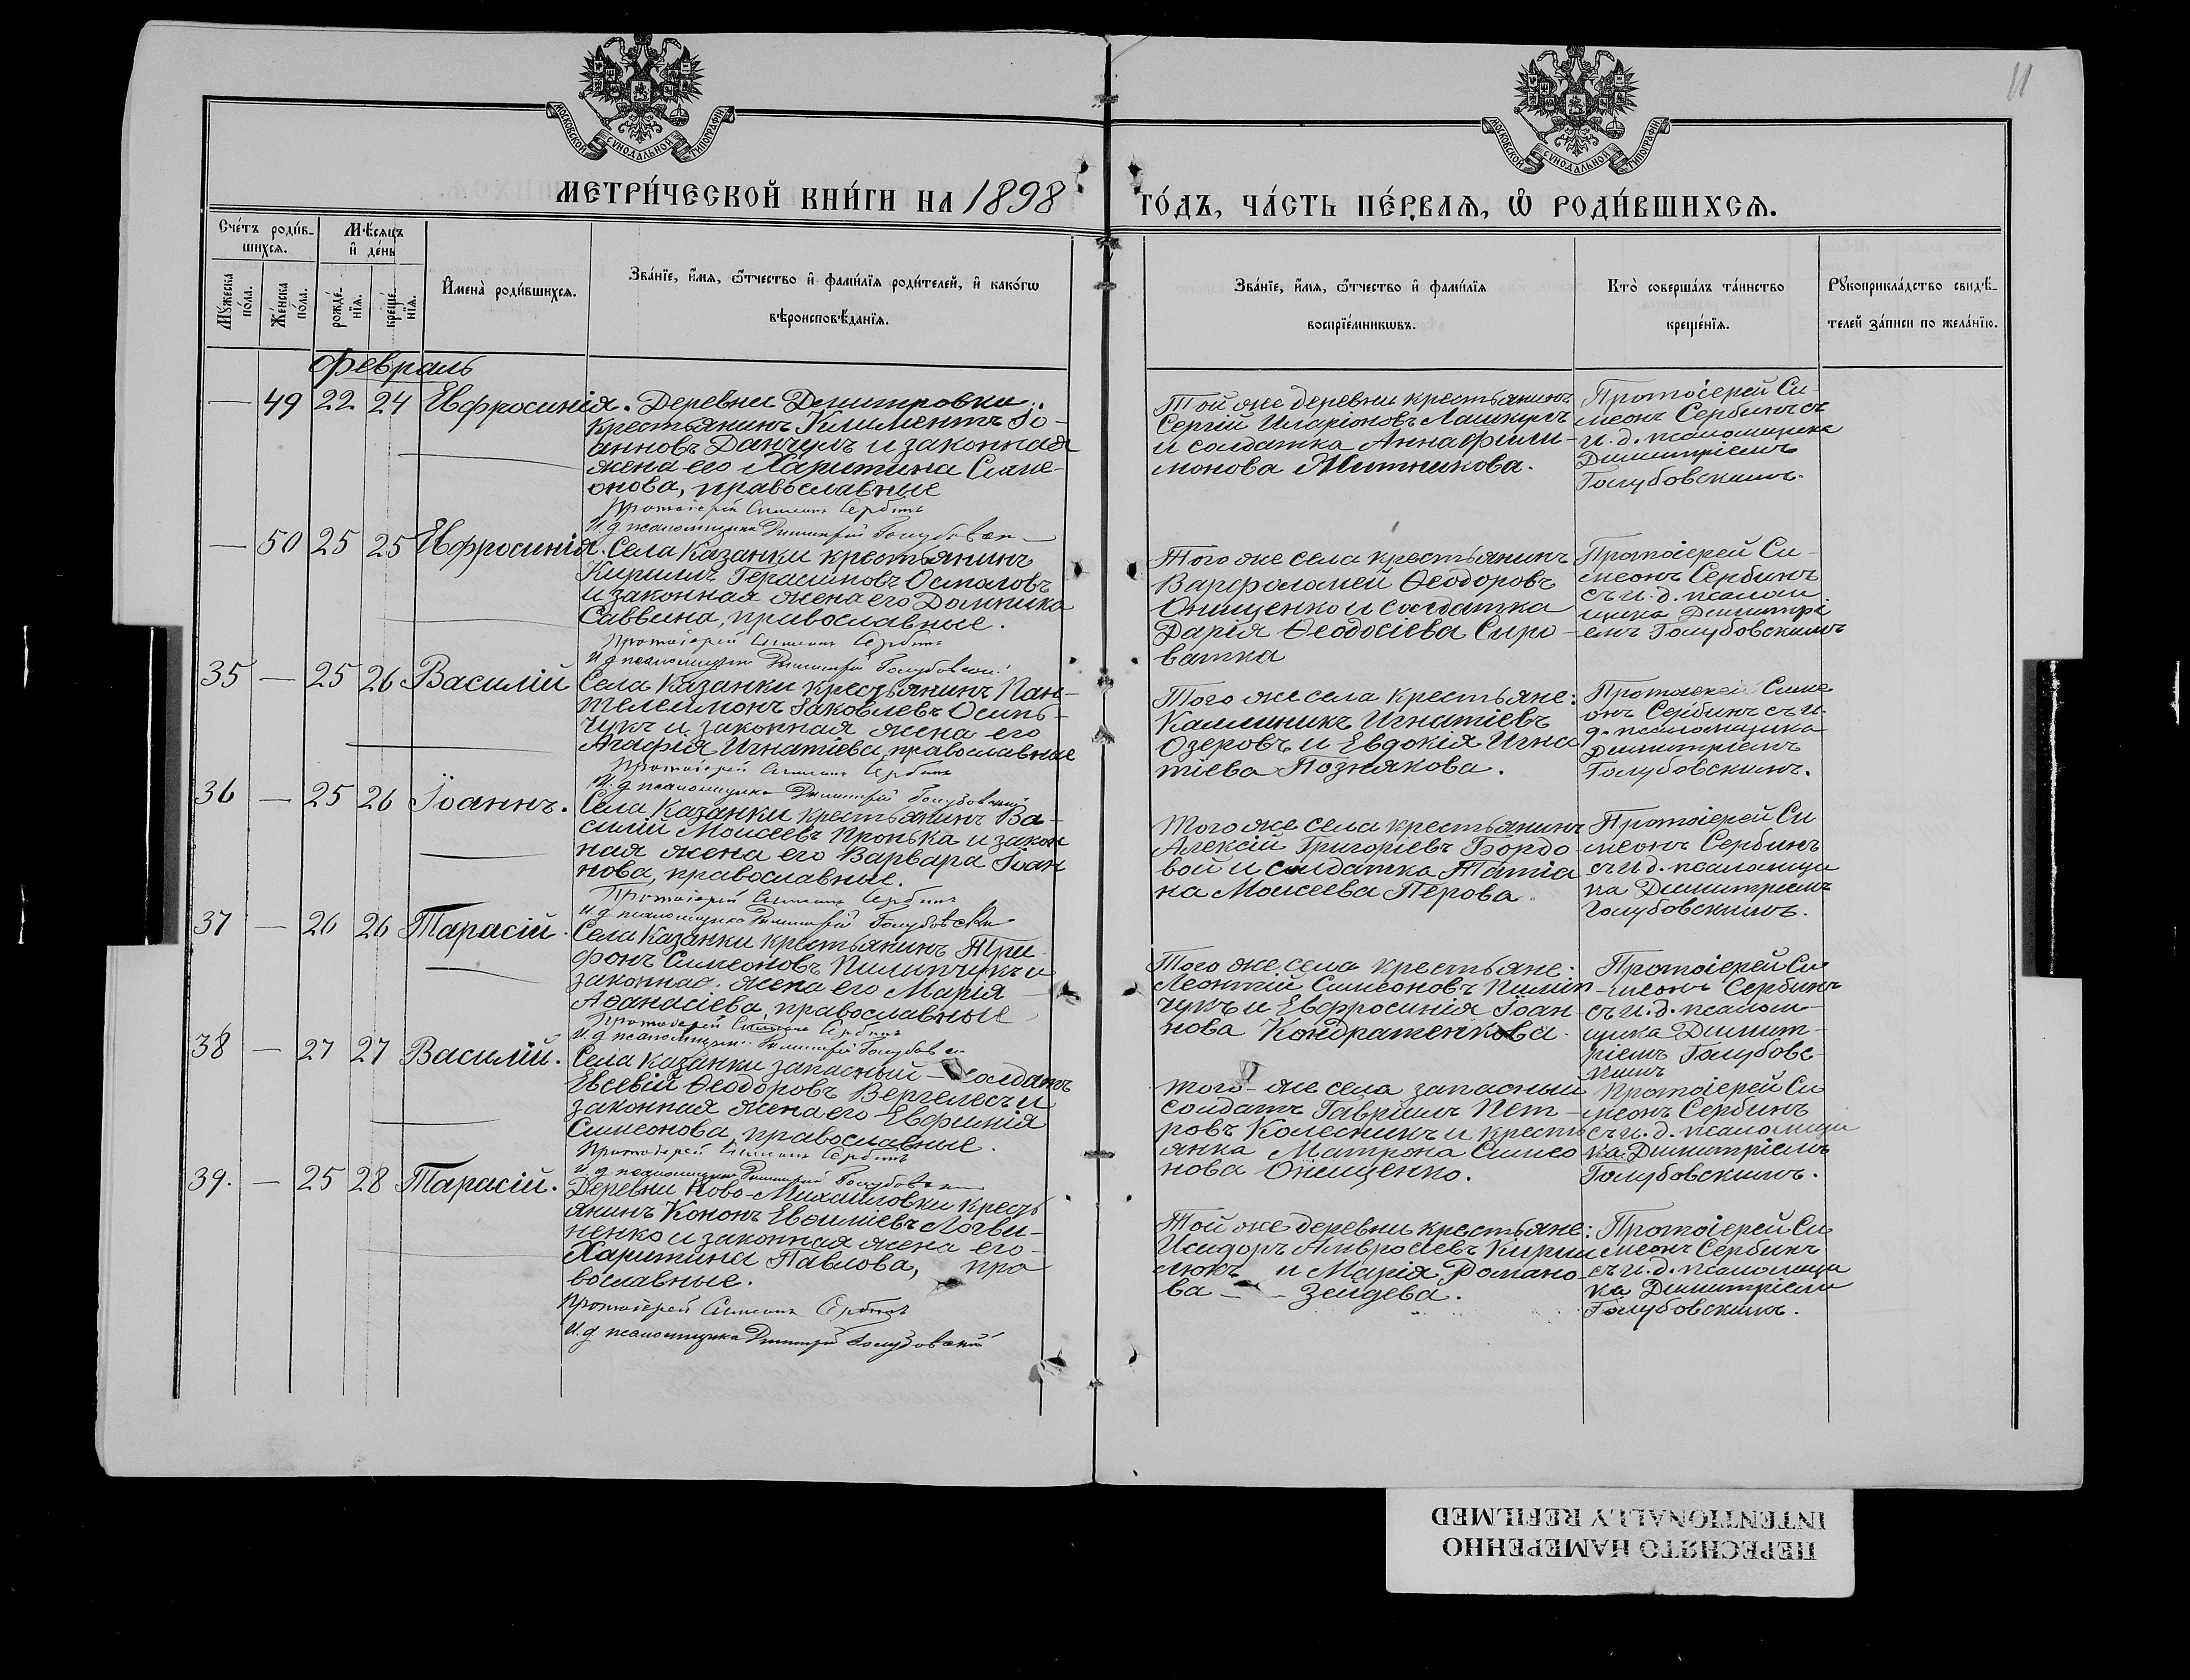 11
МОСКОВСКОЙ СѴНОДАЛЬНОЙ ТИПОГРАФІИ
МОСКОВСКОЙ СѴНОДАЛЬНОЙ ТИПОГРАФІИ
МЕТРИ́ЧЕСКОЙ КНИ́ГИ НА 1898 ГО́ДЪ, ЧА́СТЬ ПЕ́РВАѦ, Ѽ РОДИ́ВШИХСѦ.
Сче́тъ роди́в-
шихсѧ.
Мꙋ́жеска по́ла.
Же́нска по́ла.
Мѣ́сѧцъ
и҆ де́нь
рожде́-
нїѧ.
креще́-
нїѧ.
И҆мена̀ роди́вшихсѧ.
Зва́нїе, и҆́мѧ, ѻ҆́тчество и҆ фами́лїѧ роди́телей, и҆ како́гѡ
вѣроисповѣ́данїѧ.
Зва́нїе, и҆́мѧ, ѻ҆́тчество и҆ фами́лїѧ
воспрїе́мникѡвъ.
Кто̀ соверша́лъ та́инство
креще́нїѧ.
Рꙋкоприкла́дство свидѣ́-
телей за́писи по жела́нїю.
Февраль
— 49 22 24 Евфросинія.
Деревни Димитровки
крестьянинъ Климентъ Іо-
анновъ Данчулъ и законная
жена его Харитина Симе-
онова, православные
Протоіерей Симеонъ Сербинъ
И. д псаломщика Димитрій Голубовскій
Той же деревни крестьянинъ
Сергій Иларіоновъ Лашкулъ
и солдатка Анна Фили-
монова Житникова.
Протоіерей Си-
меонъ Сербинъ съ
и. д. псаломщика
Димитріемъ
Голубовскимъ.
— 50 25 25 Евфросинія.
Села Казанки крестьянинъ
Кириллъ Герасимовъ Осталовъ
и законная жена его Домника
Саввина, православные.
Протоіерей Симеонъ Сербинъ
И д псаломщика Димитрій Голубовскій
Того же села крестьянинъ
Варфоломей Ѳеодоровъ
Онищенко и солдатка
Дарія Ѳеодосіева Сиро-
ватка
Протоіерей Си-
меонъ Сербинъ
съ и. д. псалом
щика Димитрі
емъ Голубовскимъ
35 — 25 26 Василій
Села Казанки крестьянинъ Пан-
телеимонъ Іаковлевъ Осипь-
чукъ и законная жена его
Агафія Игнатіева, православные
Протоіерей Симеонъ Сербинъ
И. д псаломщика Димитрій Голубовскій
Того же села крестьяне:
Каллиникъ Игнатіевъ
Озеровъ и Евдокія Игна
тіева Познякова.
Протоіерей Симе
онъ Сербинъ съ и.
д. псаломщика
Димитріемъ
Голубовскимъ.
36 — 25 26 Іоаннъ.
Села Казанки крестьянинъ Ва-
силій Моисеевъ Пронька и закон
ная жена его Варвара Іоан
нова, православные.
Протоіерей Симеонъ Сербинъ
И д псаломщика Димитрій Голубовскій
Того же села крестьянинъ
Алексій Григоріевъ Бордо
вой и солдатка Татіа
на Моисеева Перова.
Протоіерей Си
меонъ Сербинъ
съ и д. псаломщи
ка Димитріемъ
Голубовскимъ.
37 — 26 26 Тарасій.
Села Казанки крестьянинъ Три
фонъ Симеоновъ Пилипчукъ и
законная жена его Марія
Аѳанасіева, православные
Протоіерей Симеонъ Сербинъ
И. д псаломщика Димитрій Голубовскій
Того же села крестьяне:
Леонтій Симеоновъ Пилип
чукъ и Евфросинія Іоан
нова Кондратенкова.
Протоіерей Си
меонъ Сербинъ
съ и. д. псалом-
щика Димит-
ріемъ Голубовс-
кимъ
38 — 27 27 Василій.
Села Казанки запасный солдатъ
Евсевій Ѳеодоровъ Вергелесъ и
законная жена его Евфимія
Симеонова, православные.
Протоіерей Симеонъ Сербинъ
И. д псаломщика Димитрій Голубовскій
Того-же села запасный
солдатъ Гавріилъ Пет-
ровъ Колесникъ и кресть
янка Матрона Симео
нова Онищенко.
Протоіерей Си
меонъ Сербинъ
съ и. д. псаломщи
ка Димитріемъ
Голубовскимъ.
39. — 25 28 Тарасій.
Деревни Ново-Михайловки кресть
янинъ Кононъ Евѳиміевъ Логви-
ненко и законная жена его
Харитина Павлова, пра
вославные.
Протоіерей Симеонъ Сербинъ
И. д псаломщика Димитрій Голубовскій
Той же деревни крестьяне:
Исидоръ Амвросіевъ Кирил
люкъ и Марія Романо-
ва — Зендева.
Протоіерей Си
меонъ Сербинъ
съ и. д. псаломщи
ка Димитріемъ
Голубовскимъ.
ПЕРЕСНЯТО НАМЕРЕННО
INTENTIONALLY REFILMED